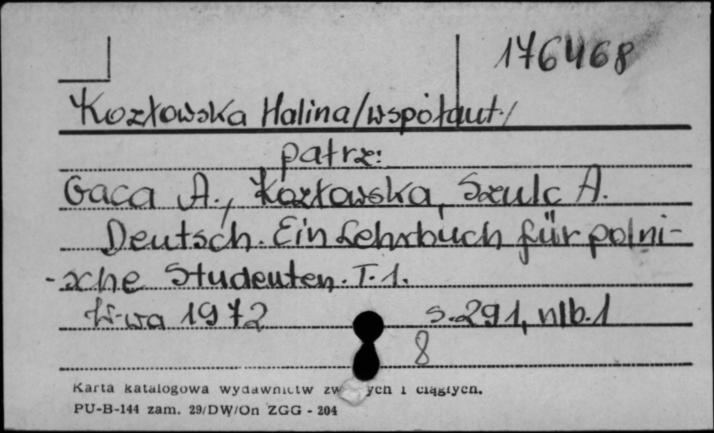 176468
Kozłowska Halina /współaut./
patrz:
Gaca A., Kozłowska, Szulc A.
Deutsch. Ein Lehrbuch für polni-
-sche Studenten. T. 1.
W-wa 1972 s. 291, nlb. 1
8
Karta katalogowa wydawnictw zw ych i ciągłych.
PU-B-144 zam. 29/DW/On ZGG - 204